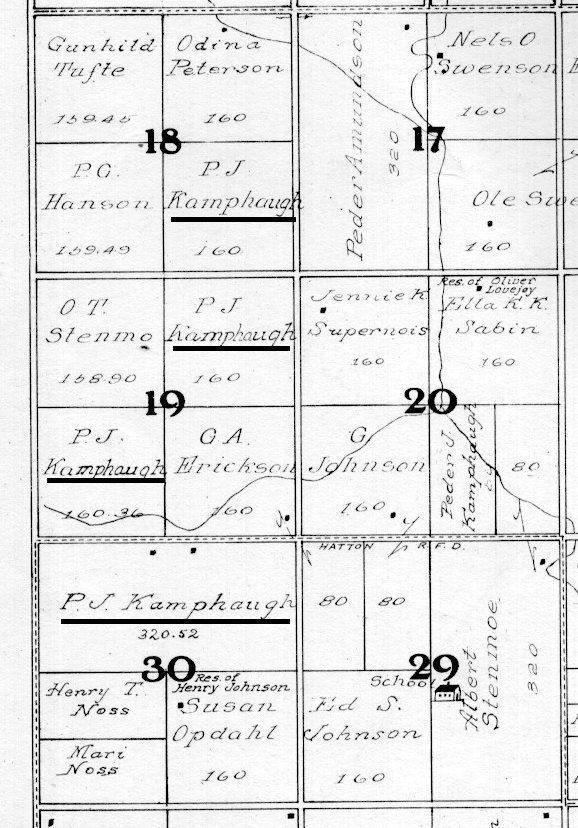 Gunhild
Tufte
159.45
Odina
Peterson
160
18
P.G.
Hanson
159.49
P J
Kamphaugh
160
Peder Amundson
320
Nels O
Swenson
160
17
Ole Swe
160
O T.
Stenmo
158.90
P J
Kamphaugh
160
19
P.J.
Kamphaugh
160.36
G A.
Erickson
160
Jennie K
Supernois
160
Res. of Oliver
Lovejoy
Ella K. K.
Sabin
160
20
G
Johnson
160
Peder J
Kamphaugh
80
P. J. Kamphaugh
320.52
30
Henry T.
Noss
Mari
Noss
Res. of
Henry Johnson
Susan
Opdahl
160
HATTON R.F.D.
80
80
29
School
Ed S.
Johnson
160
Albert
Stenmoe
320